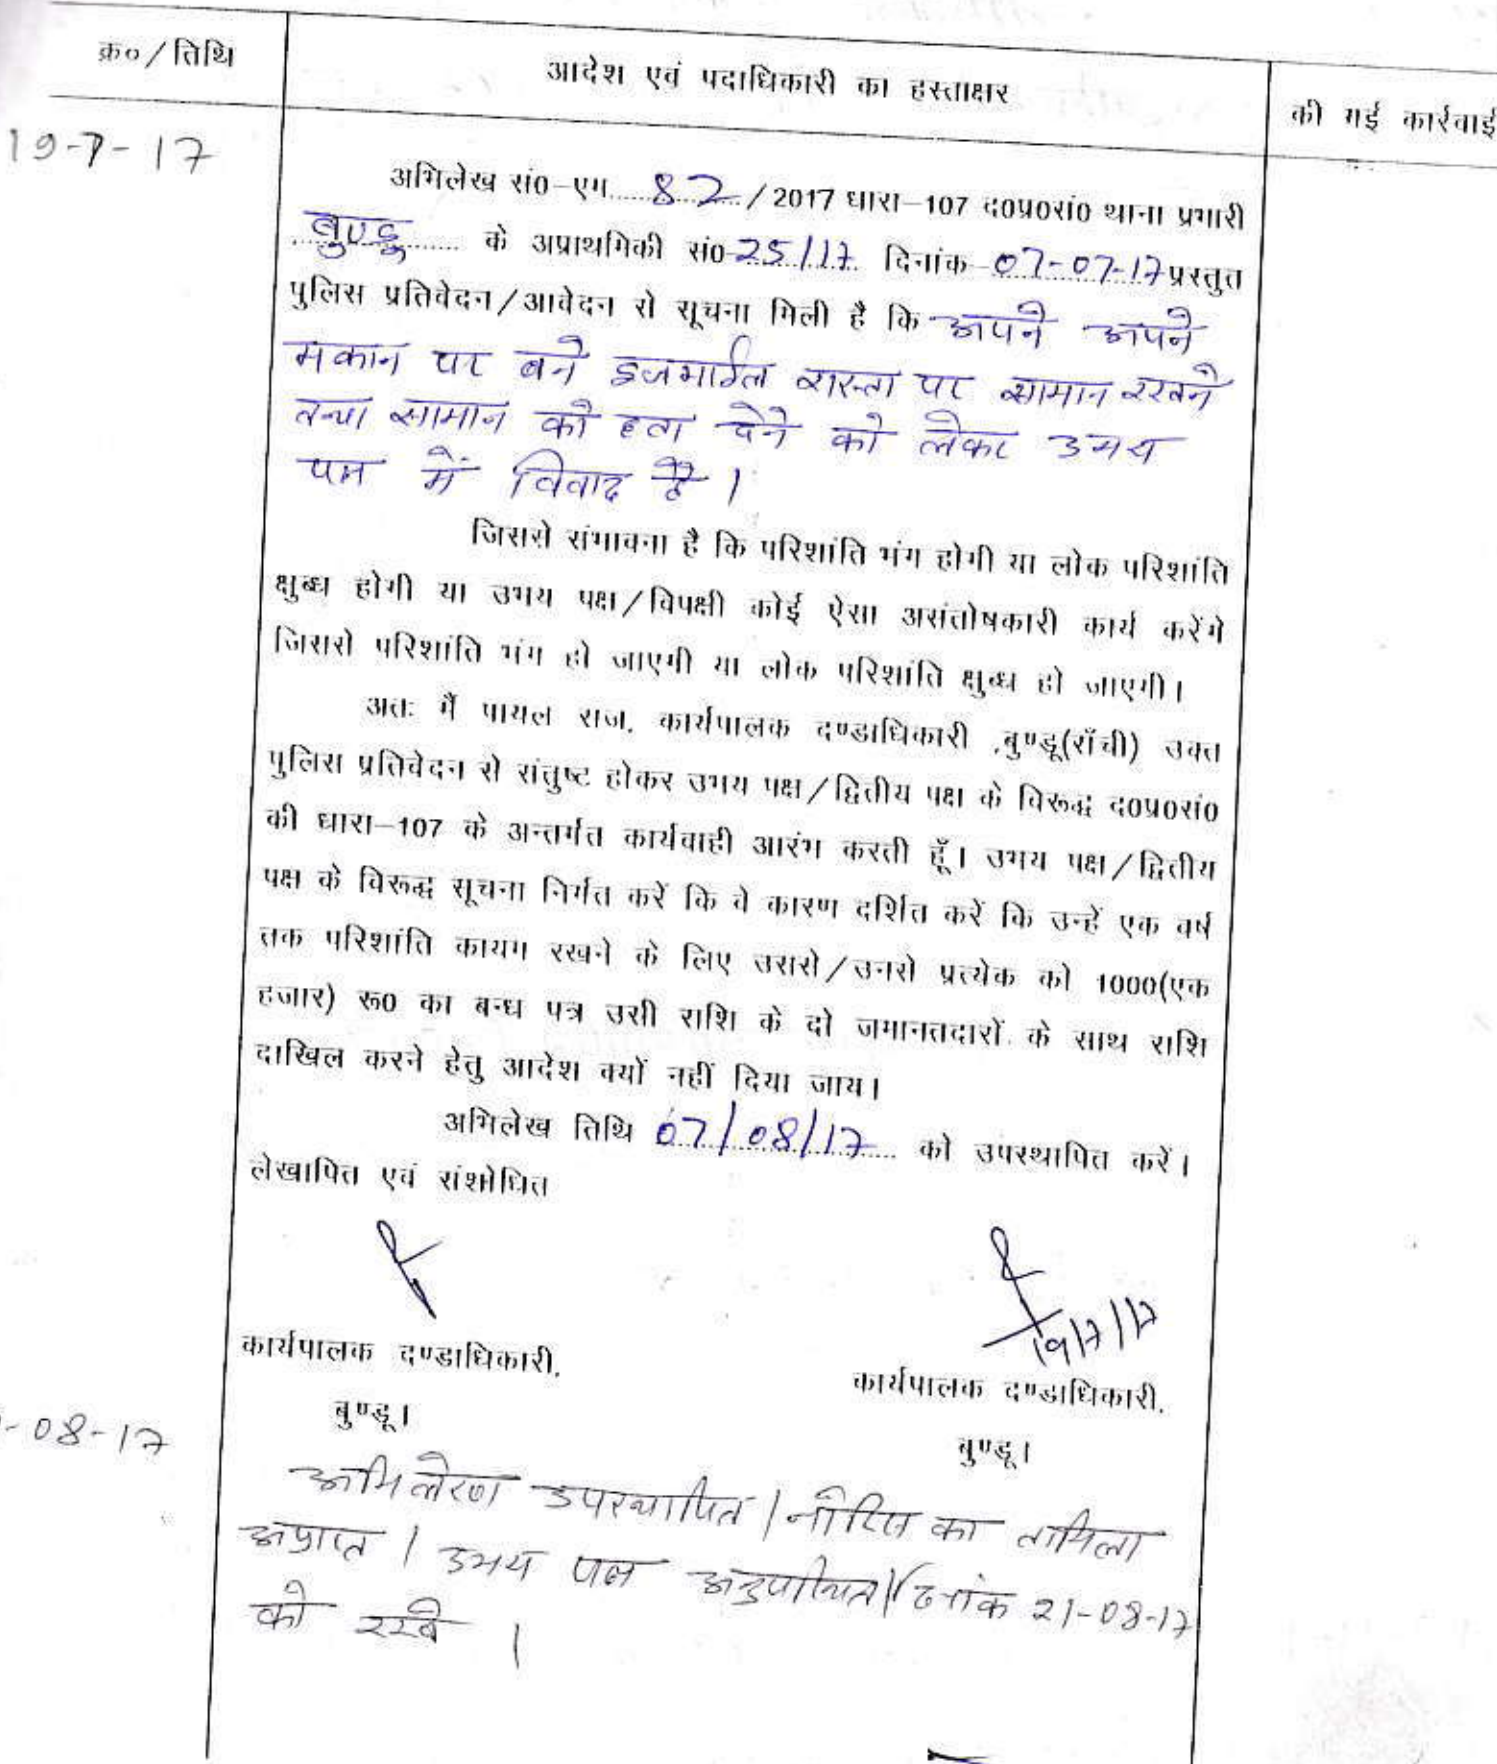 क्र०/तिथि
आदेश एवं पदाधिकारी का हस्ताक्षर
की गई कार्रवाई
19-7-17
अभिलेख सं0-एम 82/2017 धारा-107 द0प्र0सं0 थाना प्रभारी
बुण्डू के अप्राथमिकी सं0-25/17 दिनांक-07-07-17 प्रस्तुत
पुलिस प्रतिवेदन/आवेदन से सूचना मिली है कि अपने अपने
मकान पर बने इजमाईल रास्ता पर सामान रखने
तथा सामान को हटा देने को लेकर उभय
पक्ष में विवाद है।
जिससे संभावना है कि परिशांति भंग होगी या लोक परिशांति
क्षुब्ध होगी या उभय पक्ष/विपक्षी कोई ऐसा असंतोषकारी कार्य करेंगे
जिससे परिशांति भंग हो जाएगी या लोक परिशांति क्षुब्ध हो जाएगी।
अतः मैं पायल राज, कार्यपालक दण्डाधिकारी ,बुण्डू(राँची) उक्त
पुलिस प्रतिवेदन से संतुष्ट होकर उभय पक्ष/द्वितीय पक्ष के विरूद्ध द0प्र0सं0
की धारा-107 के अन्तर्गत कार्यवाही आरंभ करती हूँ। उभय पक्ष/द्वितीय
पक्ष के विरूद्ध सूचना निर्गत करें कि वे कारण दर्शित करें कि उन्हें एक वर्ष
तक परिशांति कायम रखने के लिए उससे/उनसे प्रत्येक को 1000(एक
हजार) रू0 का बन्ध पत्र उसी राशि के दो जमानतदारों के साथ राशि
दाखिल करने हेतु आदेश क्यों नहीं दिया जाय।
अभिलेख तिथि 07/08/17 को उपस्थापित करें।
लेखापित एवं संशोधित
19/7/17
कार्यपालक दण्डाधिकारी,
कार्यपालक दण्डाधिकारी,
बुण्डू।
बुण्डू।
-08-17
अभिलेख उपस्थापित। नोटिस का तामिला
अप्राप्त। उभय पक्ष अनुपस्थित। दिनांक 21-08-17
को रखें।